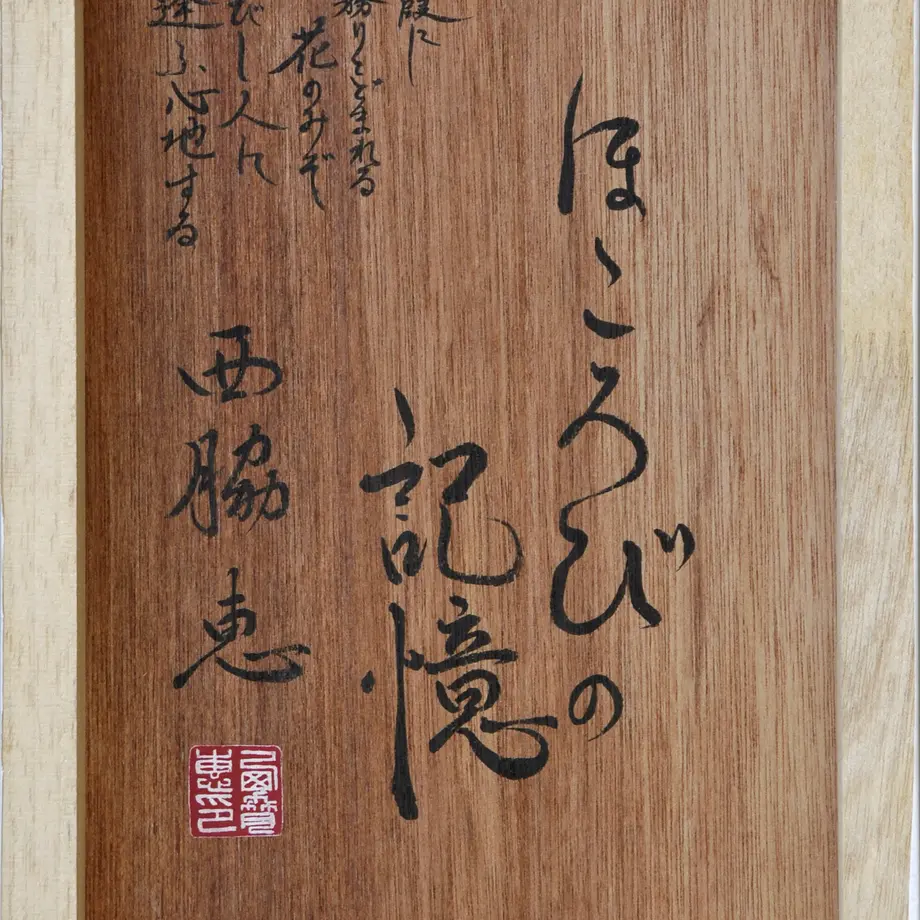 ほころびの
記憶
霞に
散りとゞまれる
花のみぞ
びし人に
逢ふ心地する
西脇 恵